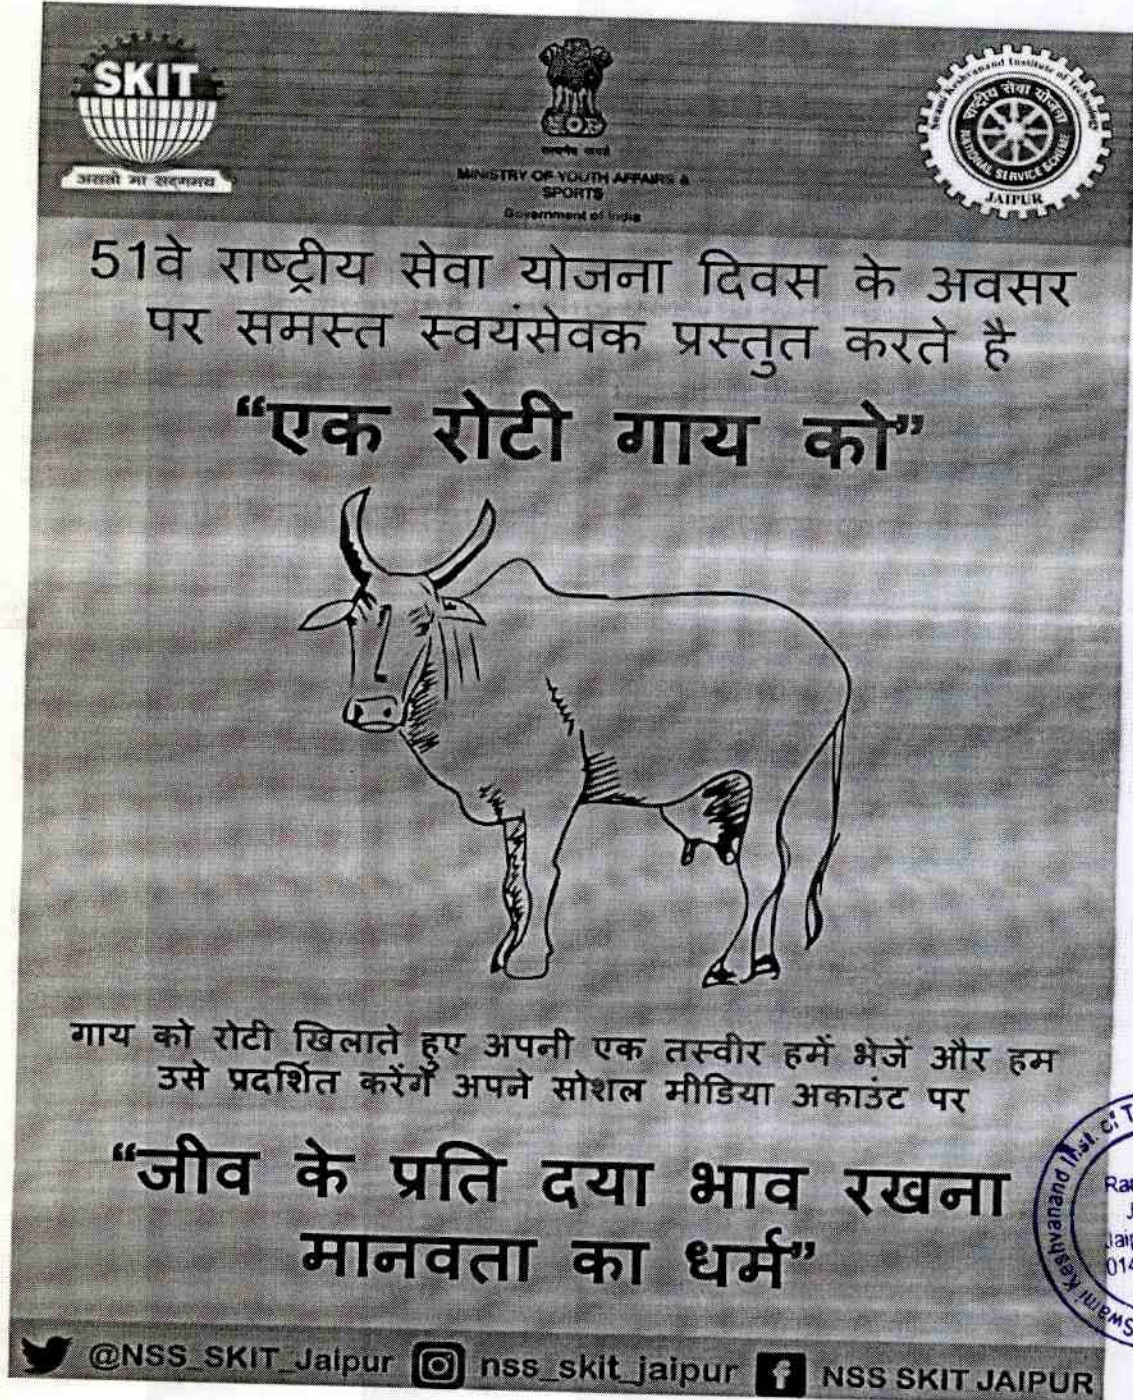 SKIT
असतो मा सद्गमय
सत्यमेव जयते
MINISTRY OF YOUTH AFFAIRS &
SPORTS
Government of India
Swami Keshvanand Institute of Technology
राष्ट्रीय सेवा योजना
NATIONAL SERVICE SCHEME
JAIPUR
51वे राष्ट्रीय सेवा योजना दिवस के अवसर
पर समस्त स्वयंसेवक प्रस्तुत करते है
“एक रोटी गाय को”
गाय को रोटी खिलाते हुए अपनी एक तस्वीर हमें भेजें और हम
उसे प्रदर्शित करेंगें अपने सोशल मीडिया अकाउंट पर
“जीव के प्रति दया भाव रखना
मानवता का धर्म”
Swami Keshvanand
@NSS_SKIT_Jaipur nss_skit_jaipur NSS SKIT JAIPUR